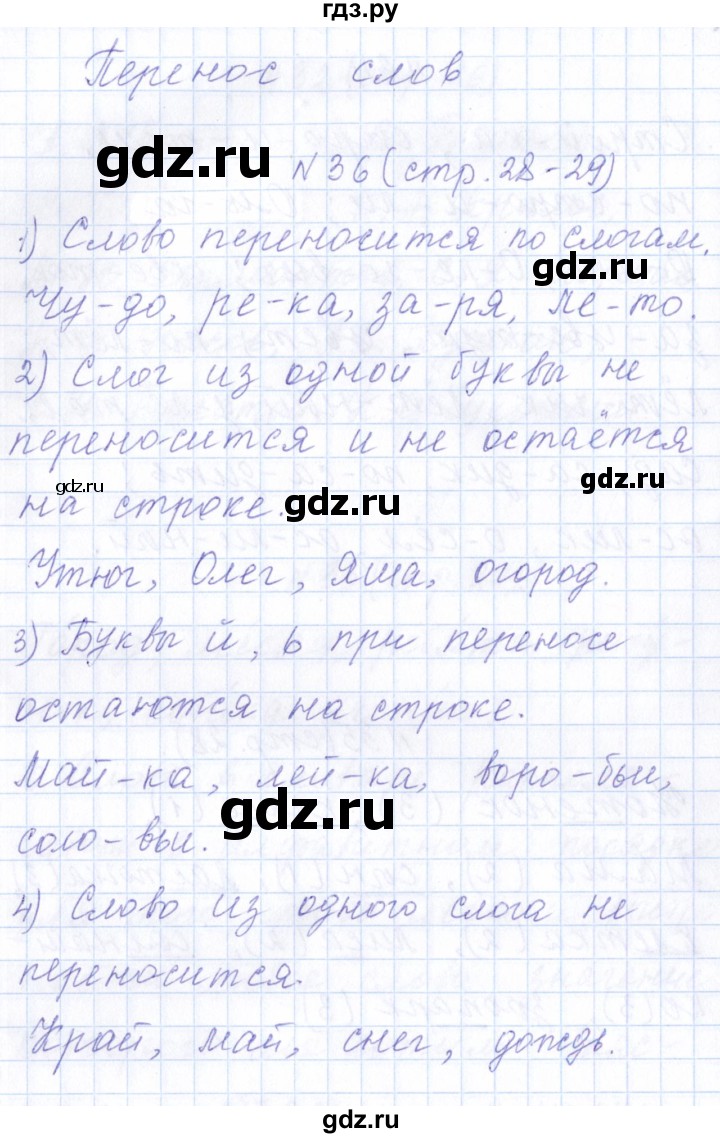 гдз.ру
Перенос слов
gdz.ru
№36 (стр. 28-29)
1) Слово переносится по слогам.
gdz.ru
Чу-до, ре-ка, за-ря, ле-то.
2) Слог из одной буквы не
переносится и не остаётся
gdz.ru gdz.ru gdz.ru
на строке.
Утюг, Олег, Яша, огород.
3) Буквы й, ь при переносе
остаются на строке.
Май-ка, лей-ка, воро-бьи,
gdz.ru
соло-вьи.
4) Слово из одного слога не
переносится.
Край, май, снег, дождь.
gdz.ru